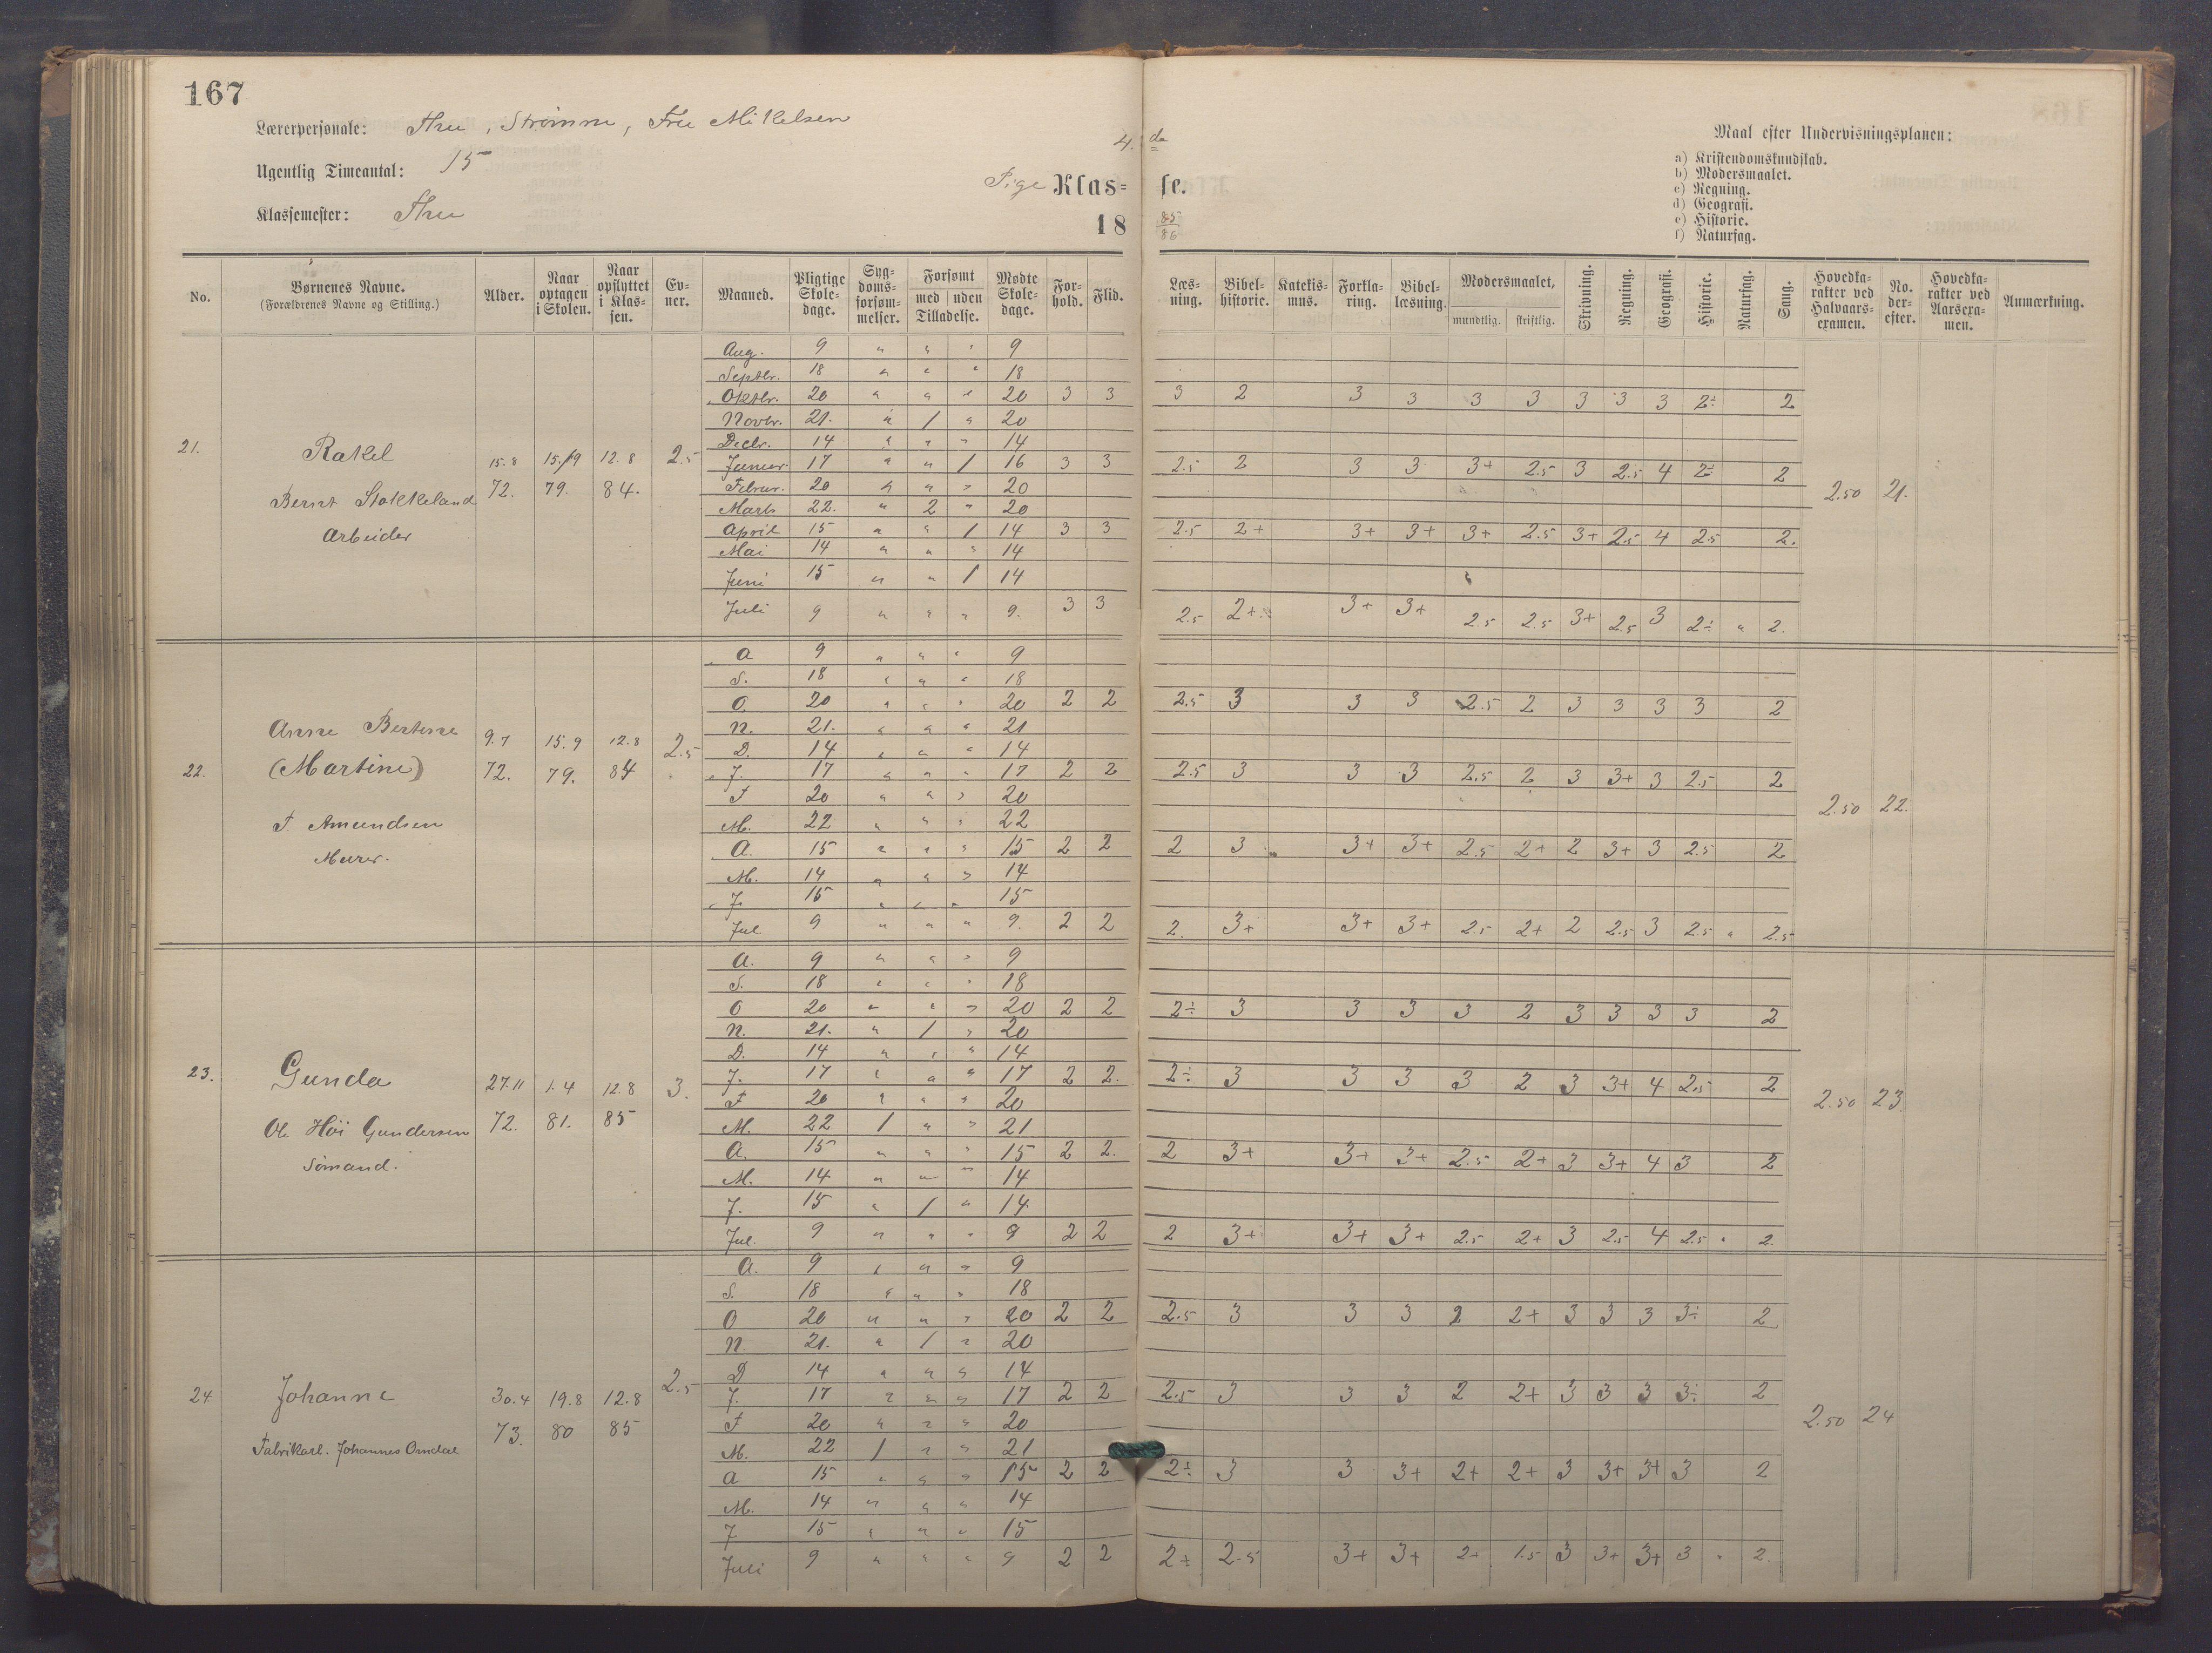 167
Lærerpersonale: Thu, Strømme, Fru Mikelsen
Ugentlig Timeantal: 15
Klassemester: Thu
4.de
Pige Klas= se.
18 85/86
Maal efter Undervisningsplanen:
a) Kristendomskundskab.
b) Modersmaalet.
c) Regning.
d) Geografi.
e) Historie.
f) Naturfag.
No. | Børnenes Navne. (Forældrenes Navne og Stilling.) | Alder. | Naar optagen i Skolen. | Naar opflyttet i Klas=sen. | Ev=ner. | Maaned. | Pligtige Skole=dage. | Syg=doms=forsøm=melser. | Forsømt med uden Tilladelse. | Mødte Skole=dage. | For=hold. | Flid. | Læs=ning. | Bibel=historie. | Katekis=mus. | Forkla=ring. | Bibel=læsning. | Modersmaalet, mundtlig. skriftlig. | Skrivning. | Regning. | Geografi. | Historie. | Naturfag. | Sang. | Hovedka=rakter ved Halvaars=examen. | No. der=efter. | Hovedka=rakter ved Aarsexa=men. | Anmærkning.
21. Rakel
Bernt Stokkeland
Arbeider
15.8 72. | 15/9 79. | 12.8 84. | 2.5
Aug. 9 " " " 9
Septbr. 18 " " " 18
Oktbr. 20 " " " 20 3 3 | 3 2 3 3 3 3 3 3 3 2÷ 2
Novbr. 21. " 1 " 20
Decbr. 14 " " " 14
Januar 17 " " 1 16 3 3 | 2.5 2 3 3 3+ 2.5 3 2.5 4 2÷ 2
Februr. 20 " " " 20
Marts 22. " 2 " 20
April 15 " " 1 14 3 3 | 2.5 2+ 3+ 3+ 3+ 2.5 3+ 2.5 4 2.5 2.
Mai 14 " " " 14
Juni 15 " " 1 14
Juli 9 " " " 9. 3 3 | 2.5 2+ 3+ 3+ 2.5 2.5 3+ 2.5 3 2÷ " 2.
2.50 21.
22. Anne Bertine
(Martine)
T Amundsen
Murer.
9.7 72. | 15.9 79. | 12.8 84 | 2.5
A 9 " " " 9
S. 18 " " " 18
O. 20 " " " 20 2 2 | 2.5 3 3 3 2.5 2 3 3 3 3 2
N. 21. " " " 21
D. 14 " " " 14
J. 17 " " " 17 2 2 | 2.5 3 3 3 2.5 2 3 3+ 3 2.5 2
F 20 " " " 20
M. 22 " " " 22
A. 15 " " " 15 2 2 | 2 3 3+ 3+ 2.5 2+ 2 3+ 3 2.5 2
M. 14 " " " 14
J. 15 " " " 15
Jul 9 " " " 9. 2 2 | 2. 3+ 3+ 3+ 2.5 2+ 2 2.5 3 2.5 " 2.5
2.50 22.
23. Gunda
Ole Høi Gundersen
Sømand.
27.11 72. | 1.4 81. | 12.8 85 | 3.
A. 9 " " " 9
S. 18 " " " 18
O 20 " " " 20 2 2 | 2÷ 3 3 3 3 2 3 3 3 3 2
N. 21. " 1 " 20
D. 14 " " " 14
J. 17 " " " 17 2 2. | 2÷ 3 3 3 3 2 3 3+ 4 2.5 2
F 20 " " " 20
M. 22 1 " " 21
A. 15 " " " 15 2 2. | 2 3+ 3+ 3+ 2.5 2+ 3 3+ 4 3 2
M. 14 " " " 14
J. 15 " 1 " 14
Jul. 9 " " " 9 2 2 | 2 3+ 3+ 3+ 2.5 2+ 3 2.5 4 2.5 " 2.
2.50 23.
24. Johanne
Fabrikarb. Johannes Omdal
30.4 73. | 19.8 80 | 12.8 85 | 2.5
A. 9 " " " 9
S. 18 " " " 18
O 20 " " " 20 2 2 | 2.5 3 3 3 2 2+ 3 3 3 3÷ 2
N. 21. " 1 " 20
D 14 " " " 14
J. 17 " " " 17 2 2 | 2.5 3 3 3 2 2+ 3 3 3 3÷ 2
F 20 " " " 20
M. 22 1 " " 21
A 15 " " " 15 2 2 | 2÷ 3 3 3+ 2+ 2+ 3 3+ 3+ 3 2
M. 14 " " " 14
J 15 " " " 15
Juli 9 " " " 9 2 2 | 2÷ 2.5 3+ 3+ 2+ 1.5 3 3+ 3+ 3 " 2.
2.50 24